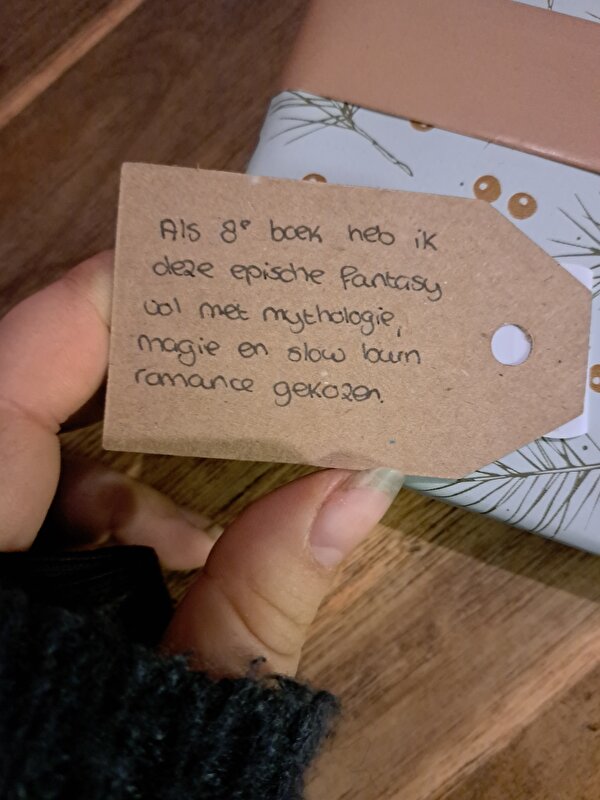 Als 8e boek heb ik
deze epische fantasy
vol met mythologie,
magie en slow burn
romance gekozen.